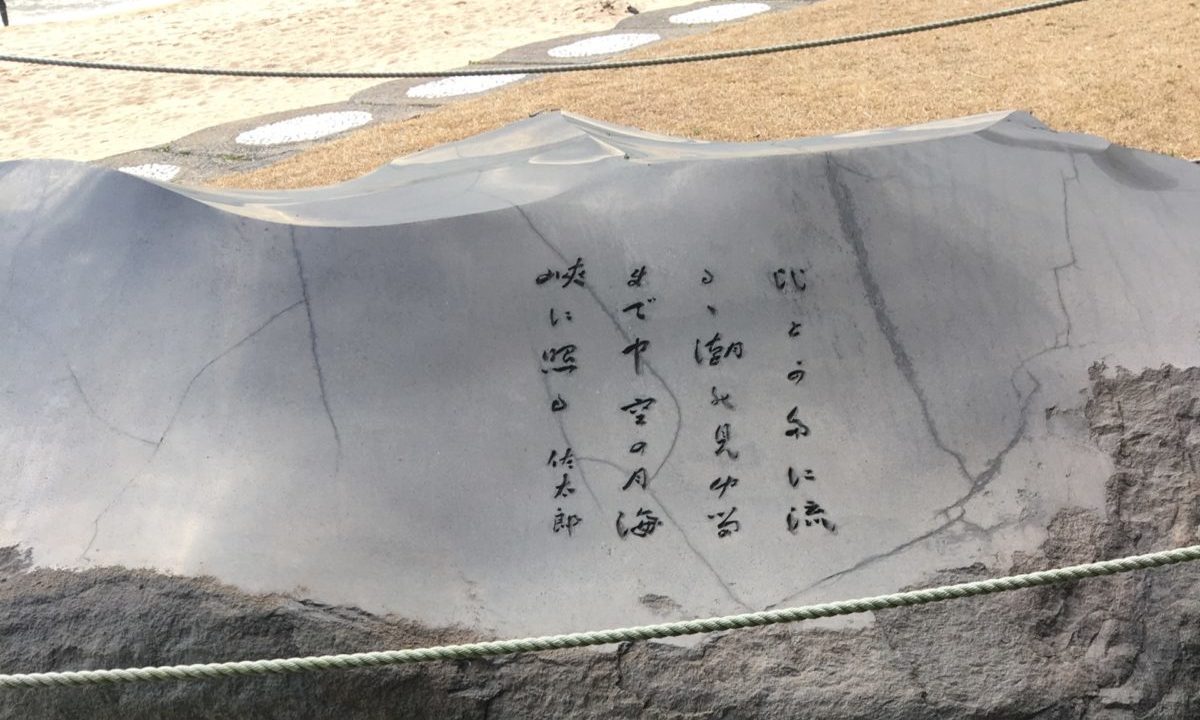 ひとかたに流
るゝ潮の見ゆる
まで中空の月海
峽に照る 佐太郎